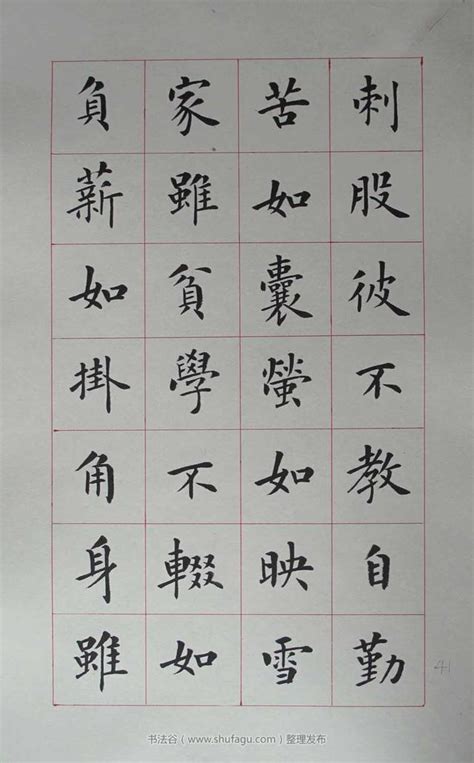 刺股彼不教自勤
苦如囊螢如映雪
家雖貧學不輟如
負薪如掛角身雖
41
书法谷（www.shufagu.com）整理发布